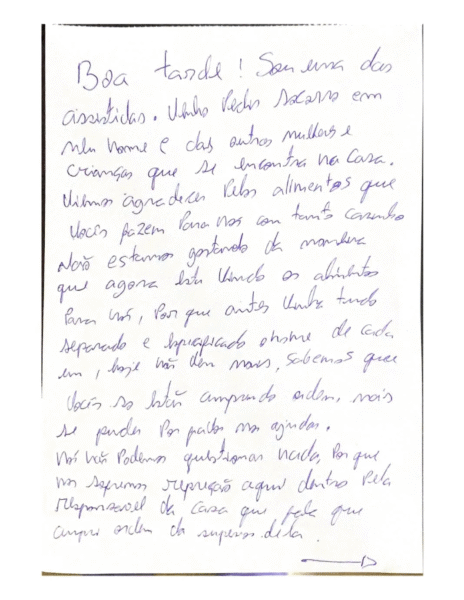 Boa tarde! Sou uma das
assistidas. Venho Pedir Socorro em
meu nome e das outras mulheres e
crianças que se encontra na Casa.
Viemos agradecer Pelos alimentos que
Vocês fazem Para nós com tanto carinho
Não estamos gostando da maneira
que agora está vindo os alimentos
Para nós, Por que antes vinha tudo
separado e especificado o nome de cada
um, hoje não vem mais, Sabemos que
Vocês só estão cumprindo ordem, mais
se puder Por favor nos ajudar.
Nós não Podemos questionar nada, Por que
nos sofremos repressão aqui dentro Pela
responsavel da Casa que fala que
cumpri ordem da superior dela.